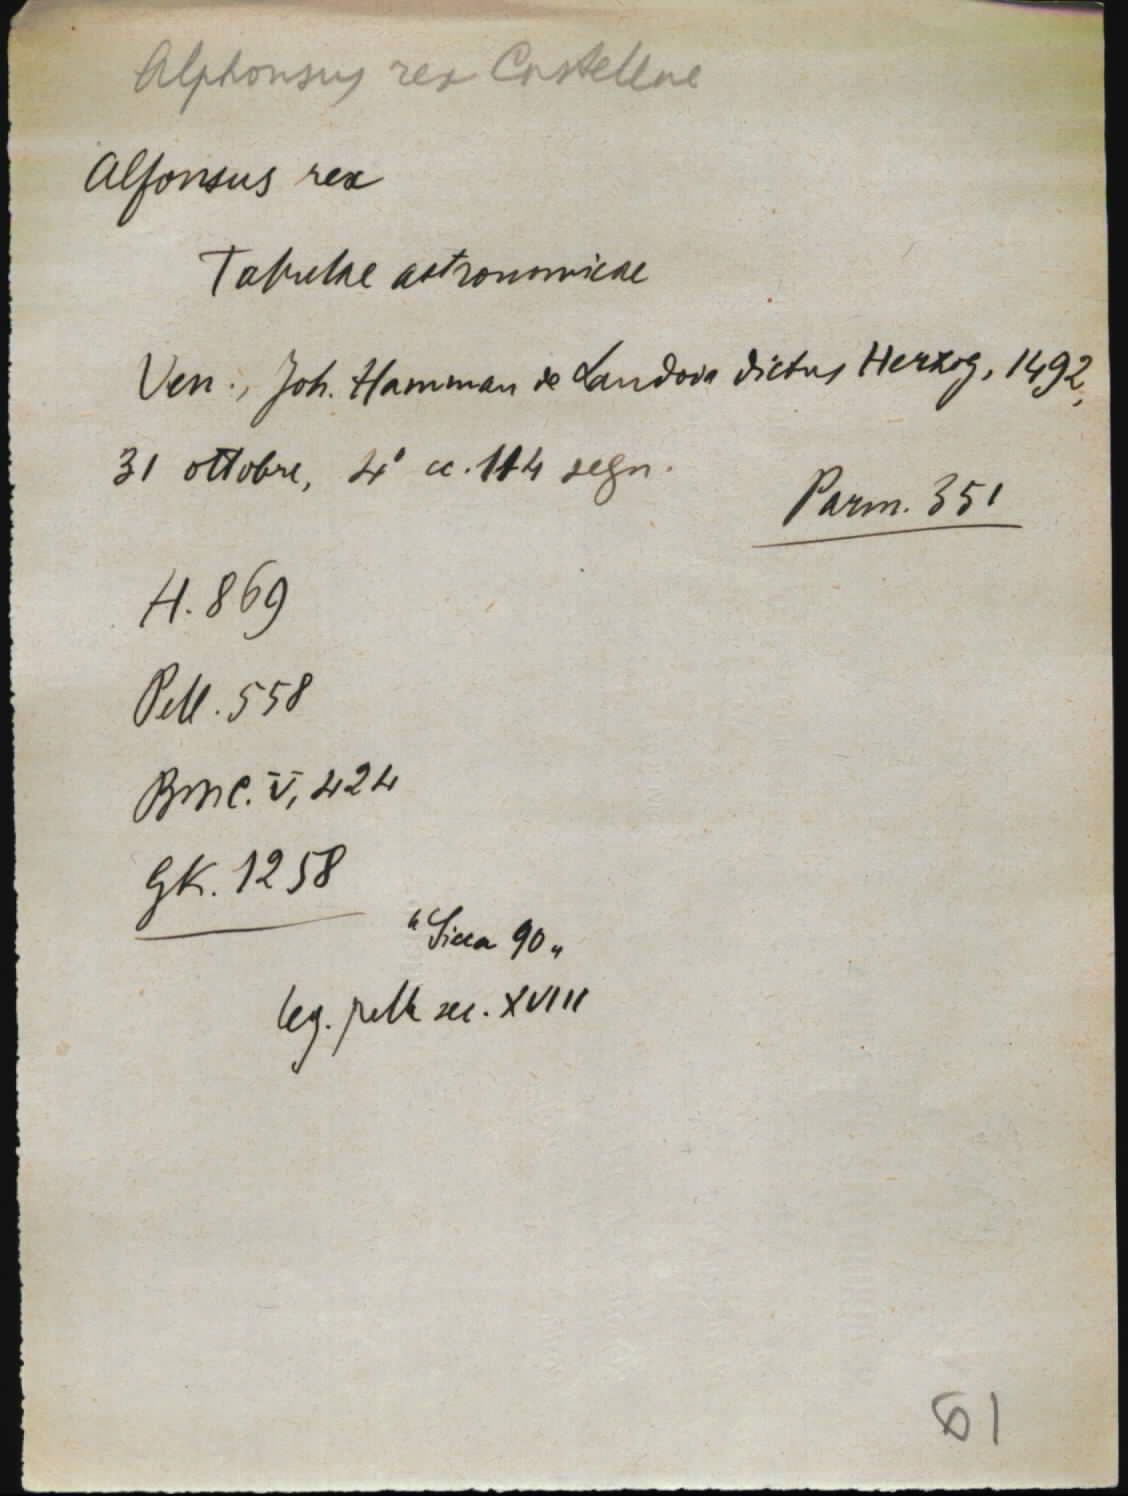 Alphonsus rex Castellae
Alfonsus rex
Tabulae astronomicae
Ven., Joh. Hamman de Landoia dictus Herzog, 1492,
31 ottobre, 4° cc. 114 segn.
Parm. 351
H. 869
Pell. 558
BMC. V, 424
GK. 1258
"Sicca 90"
leg. pelle sec. XVIII
61